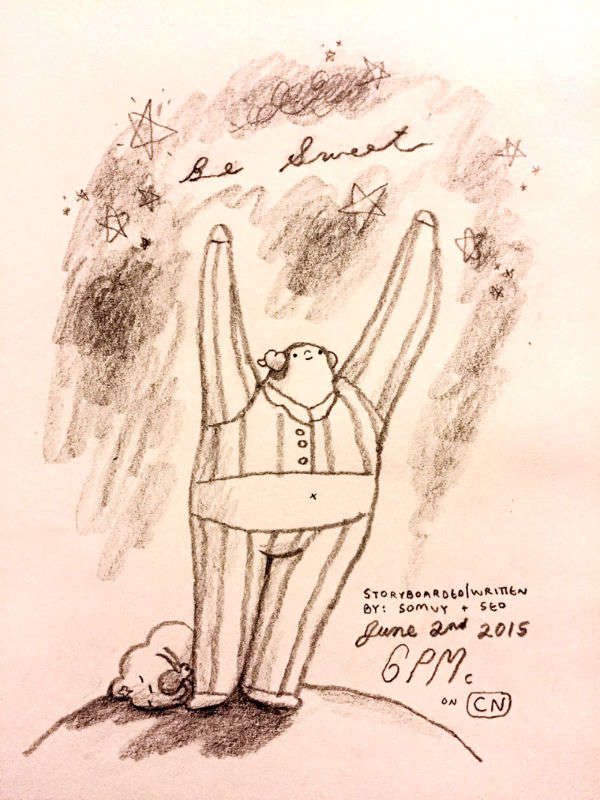 Be Sweet
STORYBOARDED/WRITTEN
BY: SOMVY + SEO
June 2nd 2015
6PMc
ON CN